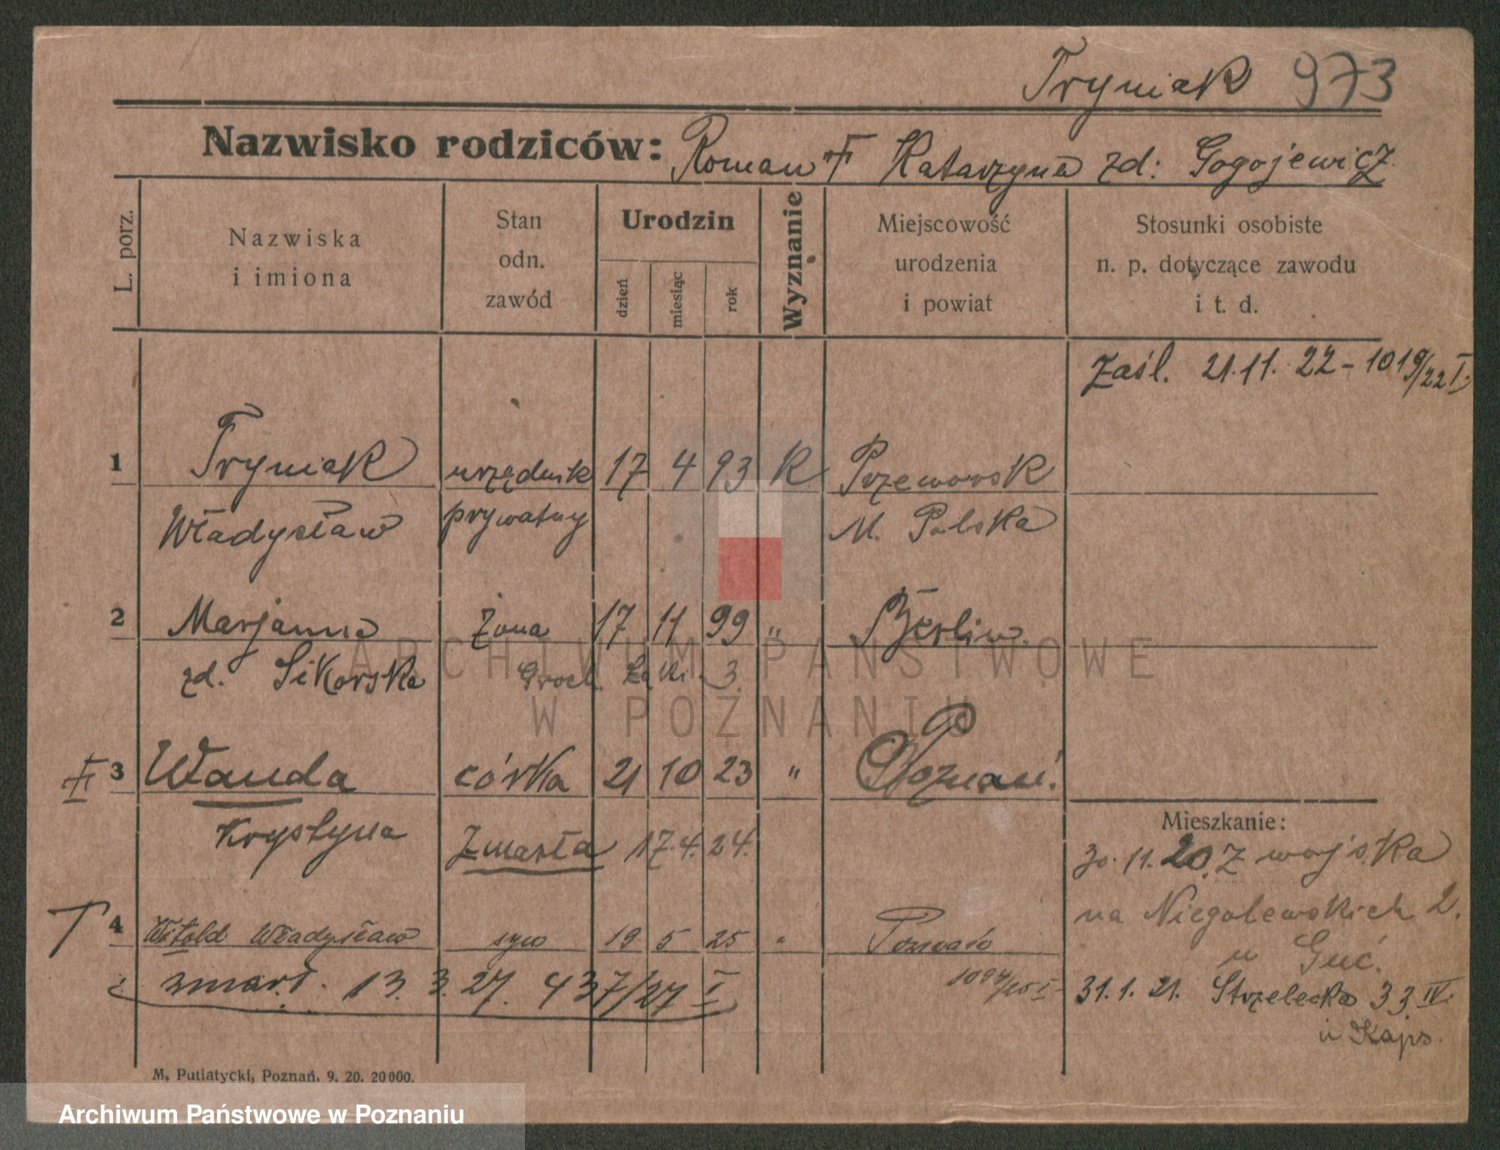 Tryniak 973
Nazwisko rodziców: Roman Katarzyna zd: Gogojewicz
L. porz.
Nazwiska
i imiona
Stan
odn.
zawód
Urodzin
dzień
miesiąc
rok
Wyznanie
Miejscowość
urodzenia
i powiat
Stosunki osobiste
n. p. dotyczące zawodu
i t. d.
Zaśl. 21.11.22 - 1019/22 I.
1 Tryniak urzędnik 17 4 93 K Przeworsk
Władysław prywatny M. Polska
2 Marjanna żona 17 11 99 " Berlin.
zd. Sikorska Groch. Łąki. 3.
3 Wanda córka 21 10 23 " Poznań.
Krystyna Zmarła 17.4.24.
4 Witold Władysław syn 19 5 25 " Poznań
zmarł. 13.3.27. 437/27 I
Mieszkanie:
30.11.20. z wojska
na Niegolewskich 2.
u Guć.
31.1.21. Strzelecka 33 IV.
u Kaps.
M. Putiatycki, Poznań. 9. 20. 20000.
ARCHIWUM PAŃSTWOWE
W POZNANIU
Archiwum Państwowe w Poznaniu